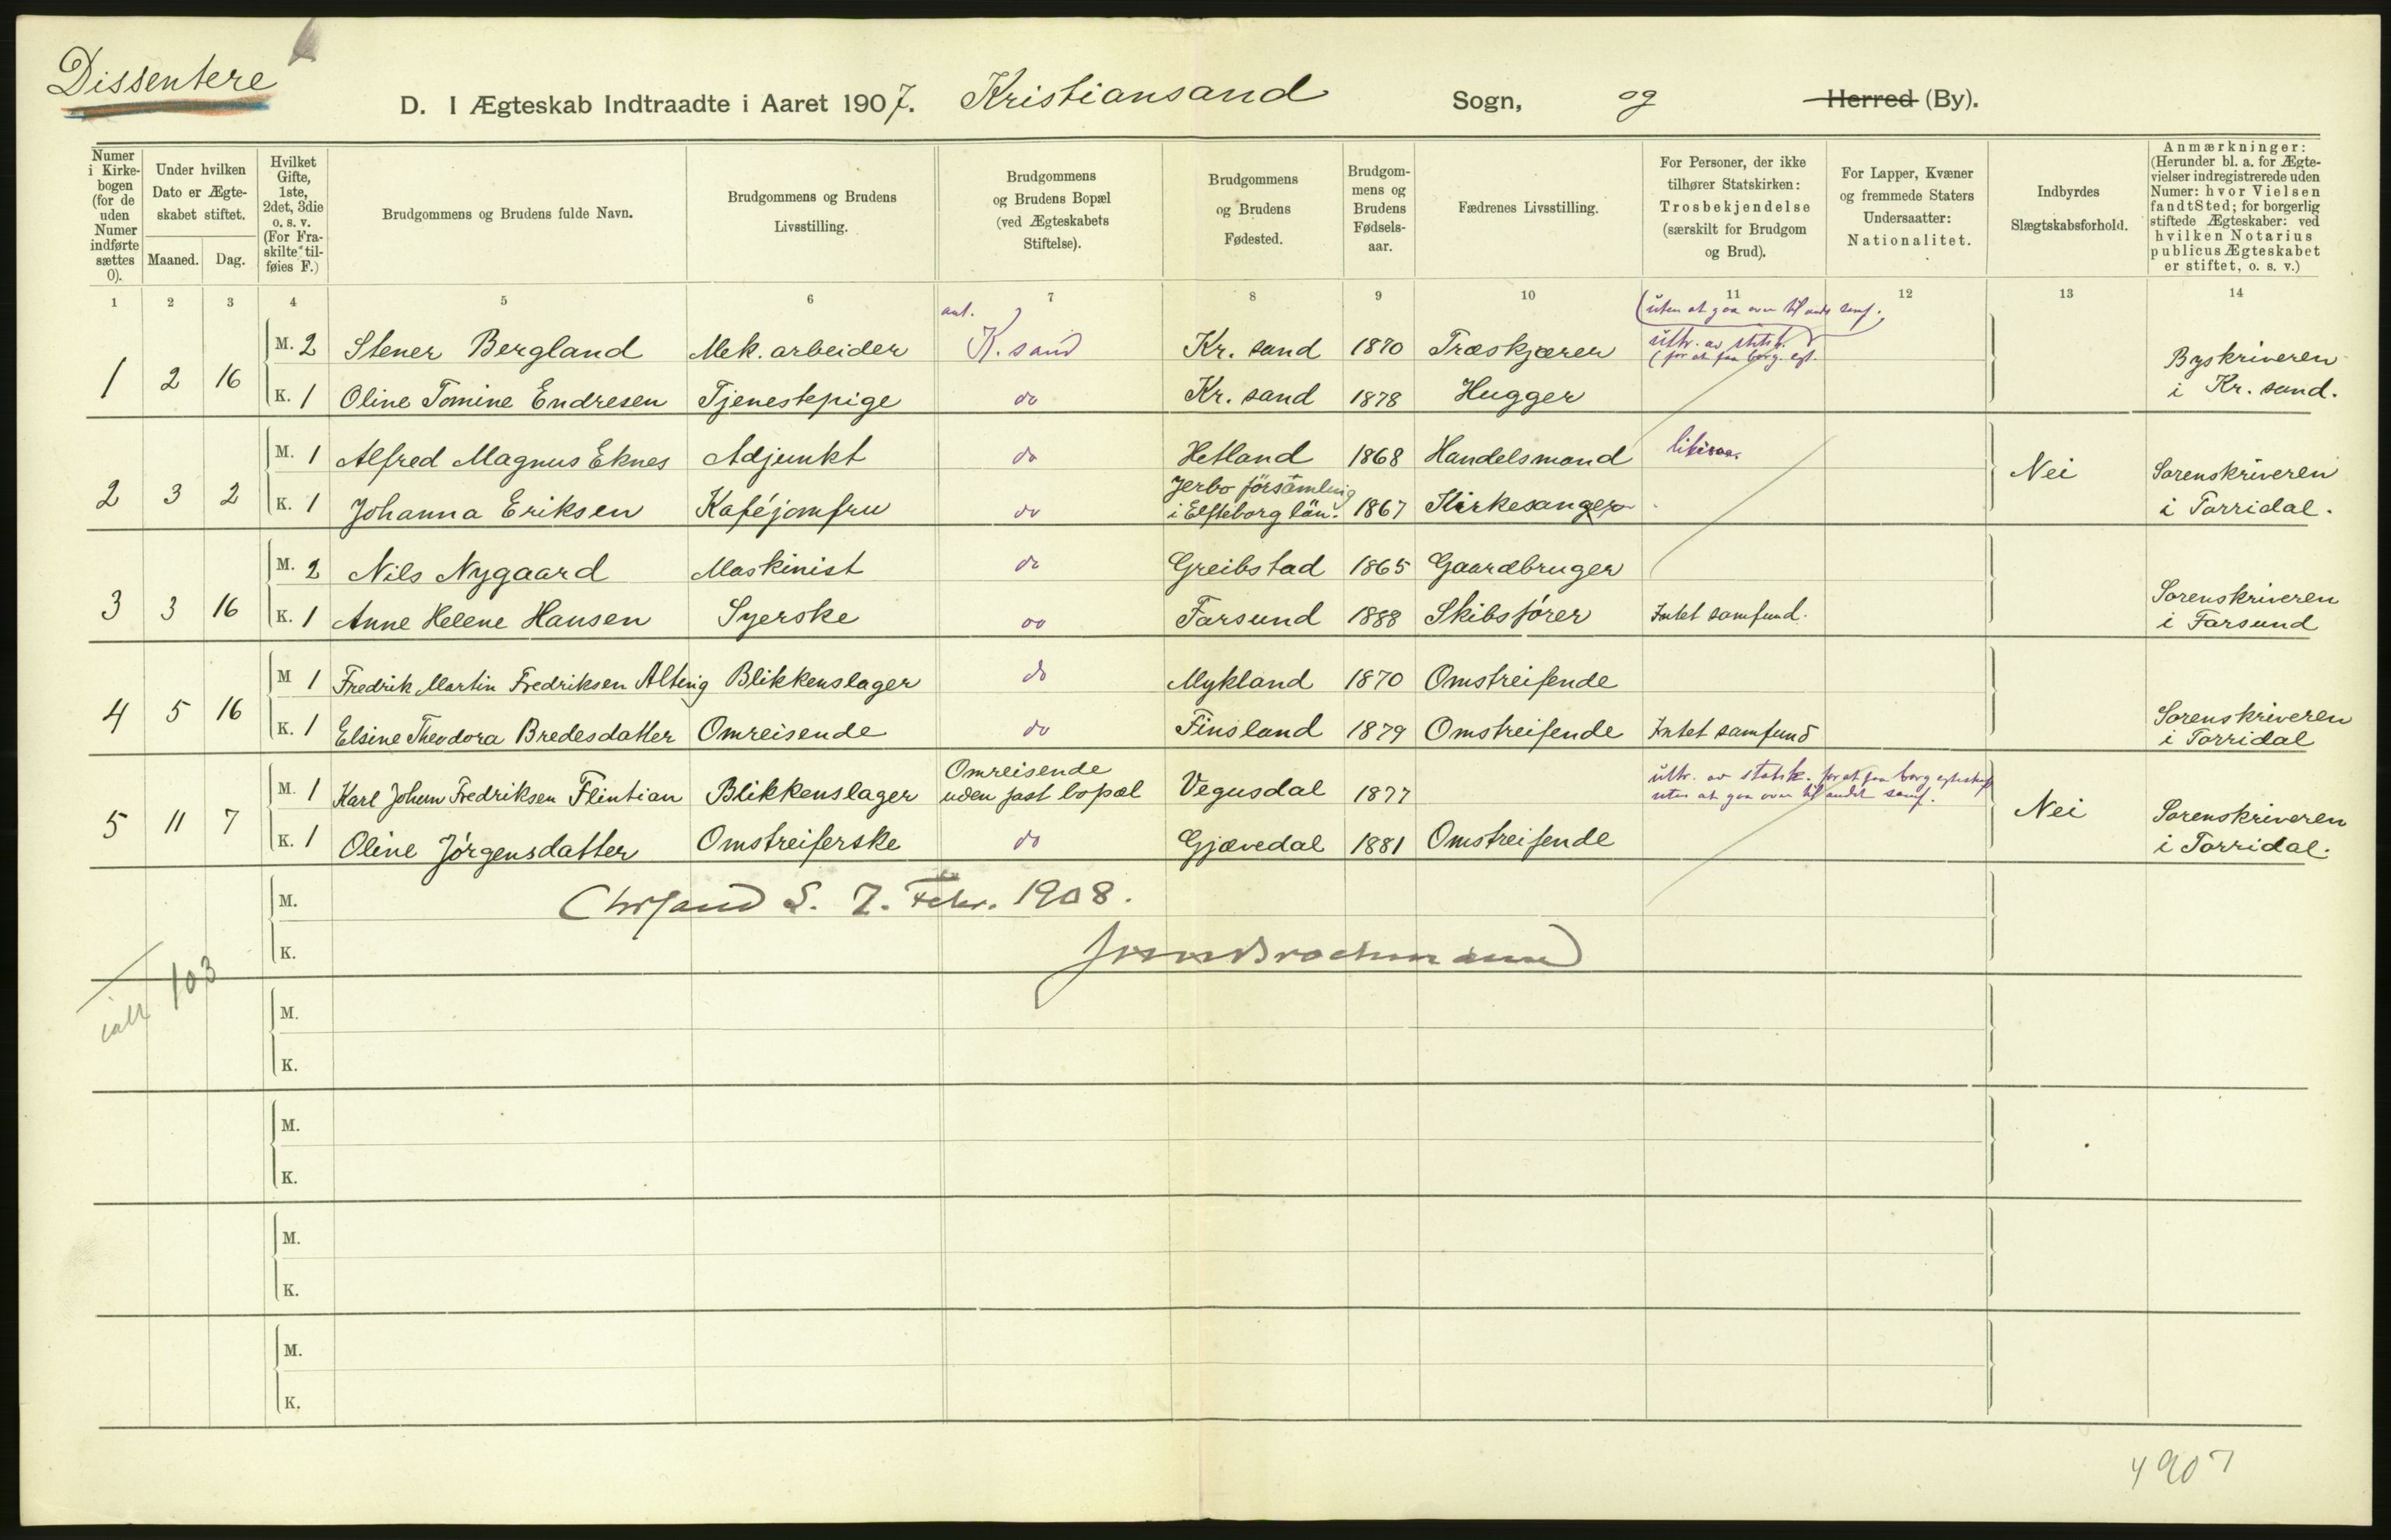 Dissentere
D. I Ægteskab Indtraadte i Aaret 1907. Kristiansand Sogn, og Herred (By).
Numer i Kirkebogen (for de uden Numer indførte sættes 0).
Under hvilken Dato er Ægteskabet stiftet.
Maaned. Dag.
Hvilket Gifte, 1ste, 2det, 3die o. s. v. (For Fraskilte tilføies F.)
Brudgommens og Brudens fulde Navn.
Brudgommens og Brudens Livsstilling.
Brudgommens og Brudens Bopæl (ved Ægteskabets Stiftelse).
Brudgommens og Brudens Fødested.
Brudgommens og Brudens Fødselsaar.
Fædrenes Livsstilling.
For Personer, der ikke tilhører Statskirken: Trosbekjendelse (særskilt for Brudgom og Brud).
For Lapper, Kvæner og fremmede Staters Undersaatter: Nationalitet.
Indbyrdes Slægtskabsforhold.
Anmærkninger: (Herunder bl. a. for Ægtevielser indregistrerede uden Numer: hvor Vielsen fandt Sted; for borgerlig stiftede Ægteskaber: ved hvilken Notarius publicus Ægteskabet er stiftet, o. s. v.)
1 2 3 4 5 6 7 8 9 10 11 12 13 14
ant.)
(uten at gaa over til andt samf.
1 2 16 M. 2 Stener Bergland Mek. arbeider K.sand Kr. sand 1870 Træskjærer uttr. av statsk. (for at faa borg. egt. Byskriveren
K. 1 Oline Tomine Endresen Tjenestepige do Kr. sand 1878 Hugger i Kr. sand.
2 3 2 M. 1 Alfred Magnus Eknes Adjunkt do Hetland 1868 Handelsmand Nei Sorenskriveren
K. 1 Johanna Eriksen Kaféjomfru do Jerbo församling i Elfsborg län. 1867 Kirkesanger i Torridal.
3 3 16 M. 2 Nils Nygaard Maskinist do Greibstad 1865 Gaardbruger Sorenskriveren
K. 1 Anne Helene Hansen Syerske do Farsund 1888 Skibsfører Intet samfund. i Farsund
4 5 16 M 1 Fredrik Martin Fredriksen Altenig Blikkenslager do Mykland 1870 Omstreifende Sorenskriveren
K. 1 Elsine Theodora Bredesdatter Omreisende do Finsland 1879 Omstreifende Intet samfund i Torridal
5 11 7 M. 1 Karl Johan Fredriksen Flintian Blikkenslager Omreisende uden fast bopæl Vegusdal 1877 uttr. av statsk. for at faa borg egteskap uten at gaa over til andet samf. Nei Sorenskriveren
K. 1 Oline Jørgensdatter Omstreiferske do Gjævedal 1881 Omstreifende i Torridal.
M. Chrsand S. 7. Febr. 1908.
K. Brochmann
ialt 103
M.
K.
M.
K.
M.
K.
M.
K.
4907